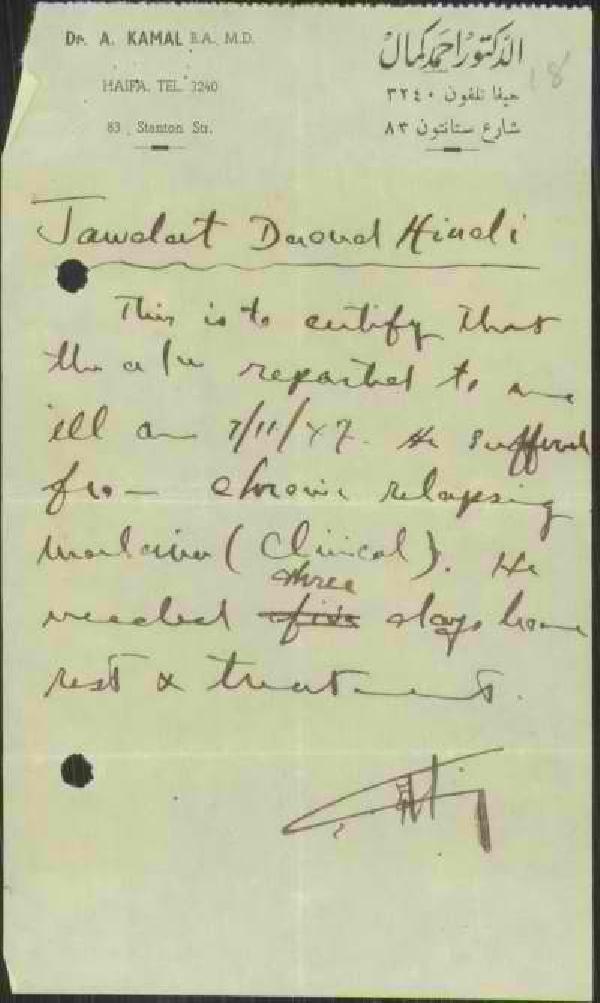 Dr. A. KAMAL B.A. M.D.
HAIFA. TEL. 3240
83, Stanton Str.
الدكتور احمد كمال
حيفا تلفون ٣٢٤٠
شارع ستانتون ٨٣
18
Jawdat Daoud Hindi
This is to certify that
the a/n reported to me
ill on 7/11/47. He suffered
from chronic relapsing
malaria (Clinical). He
three
needed five days home
rest & treatment.